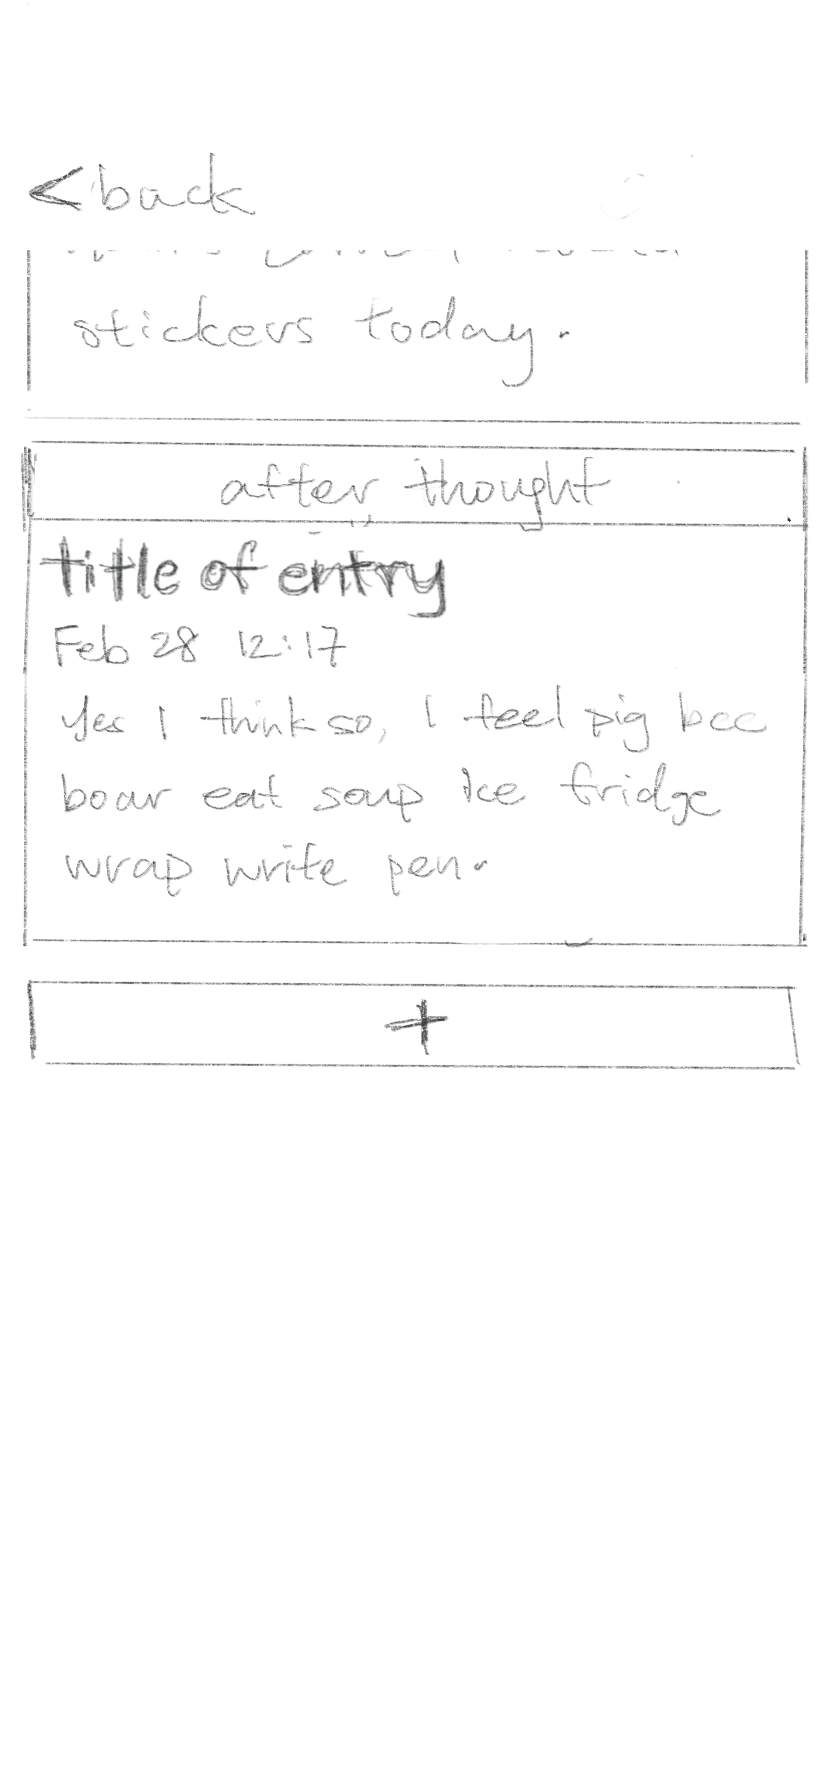 <back
stickers today.
after thought
title of entry
Feb 28 12:17
Yes I think so, I feel pig bee
boar eat soup ice fridge
wrap write pen.
+